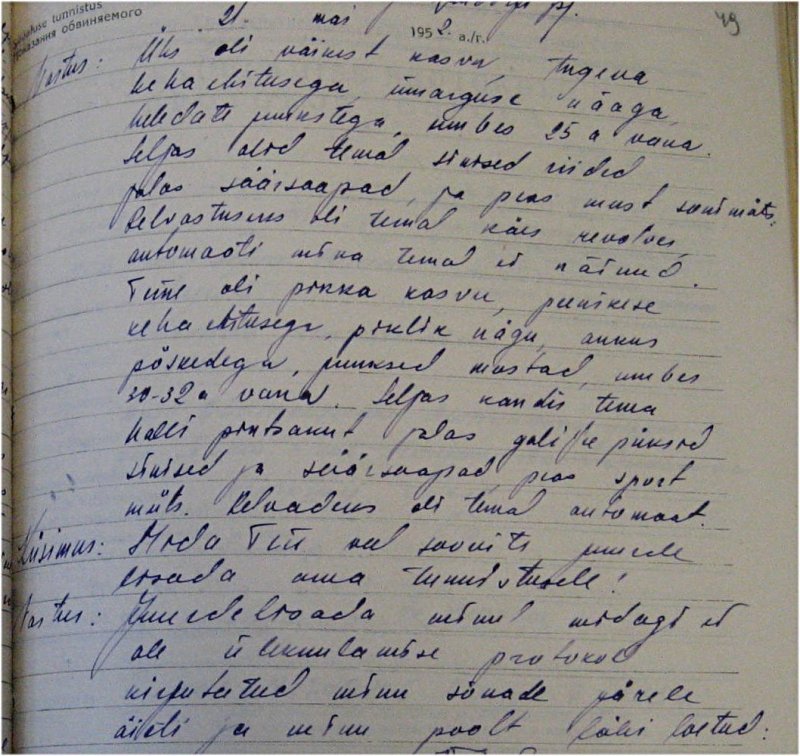 tunnistus
обвиняемого
21. mai 1952. a./г. 49
Vastus: Üks oli väikest kasvu, tugeva
kehaehitusega, ümarguse näoga,
heledate juukstega, umbes 25 a vana.
Seljas olid temal sinised riided
jalas säärsaapad, ja peas must sonimüts.
Relvastuseks oli temal käes revolver,
automaati mina temal ei näinud.
Teine oli pikka kasvu, peenikese
kehaehitusega, piklik nägu, aukus
põskedega, juuksed mustad, umbes
30-32 a vana. Seljas kandis tema
halli pintsakut jalas galifee püksid
sinised ja säärsaapad, peas sport
müts. Relvadeks oli temal automaat.
Küsimus: Mida Teie veel soovite juurde
lisada oma tunnistusele!
Vastus: Juurdelisada minul midagi ei
ole ülekuulamise protokoll
kirjutatud minu sõnade järele
õieti ja minu poolt läbi loetud: